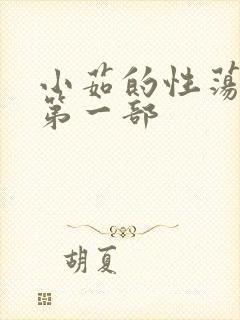 小茹的性荡
第一部
胡夏